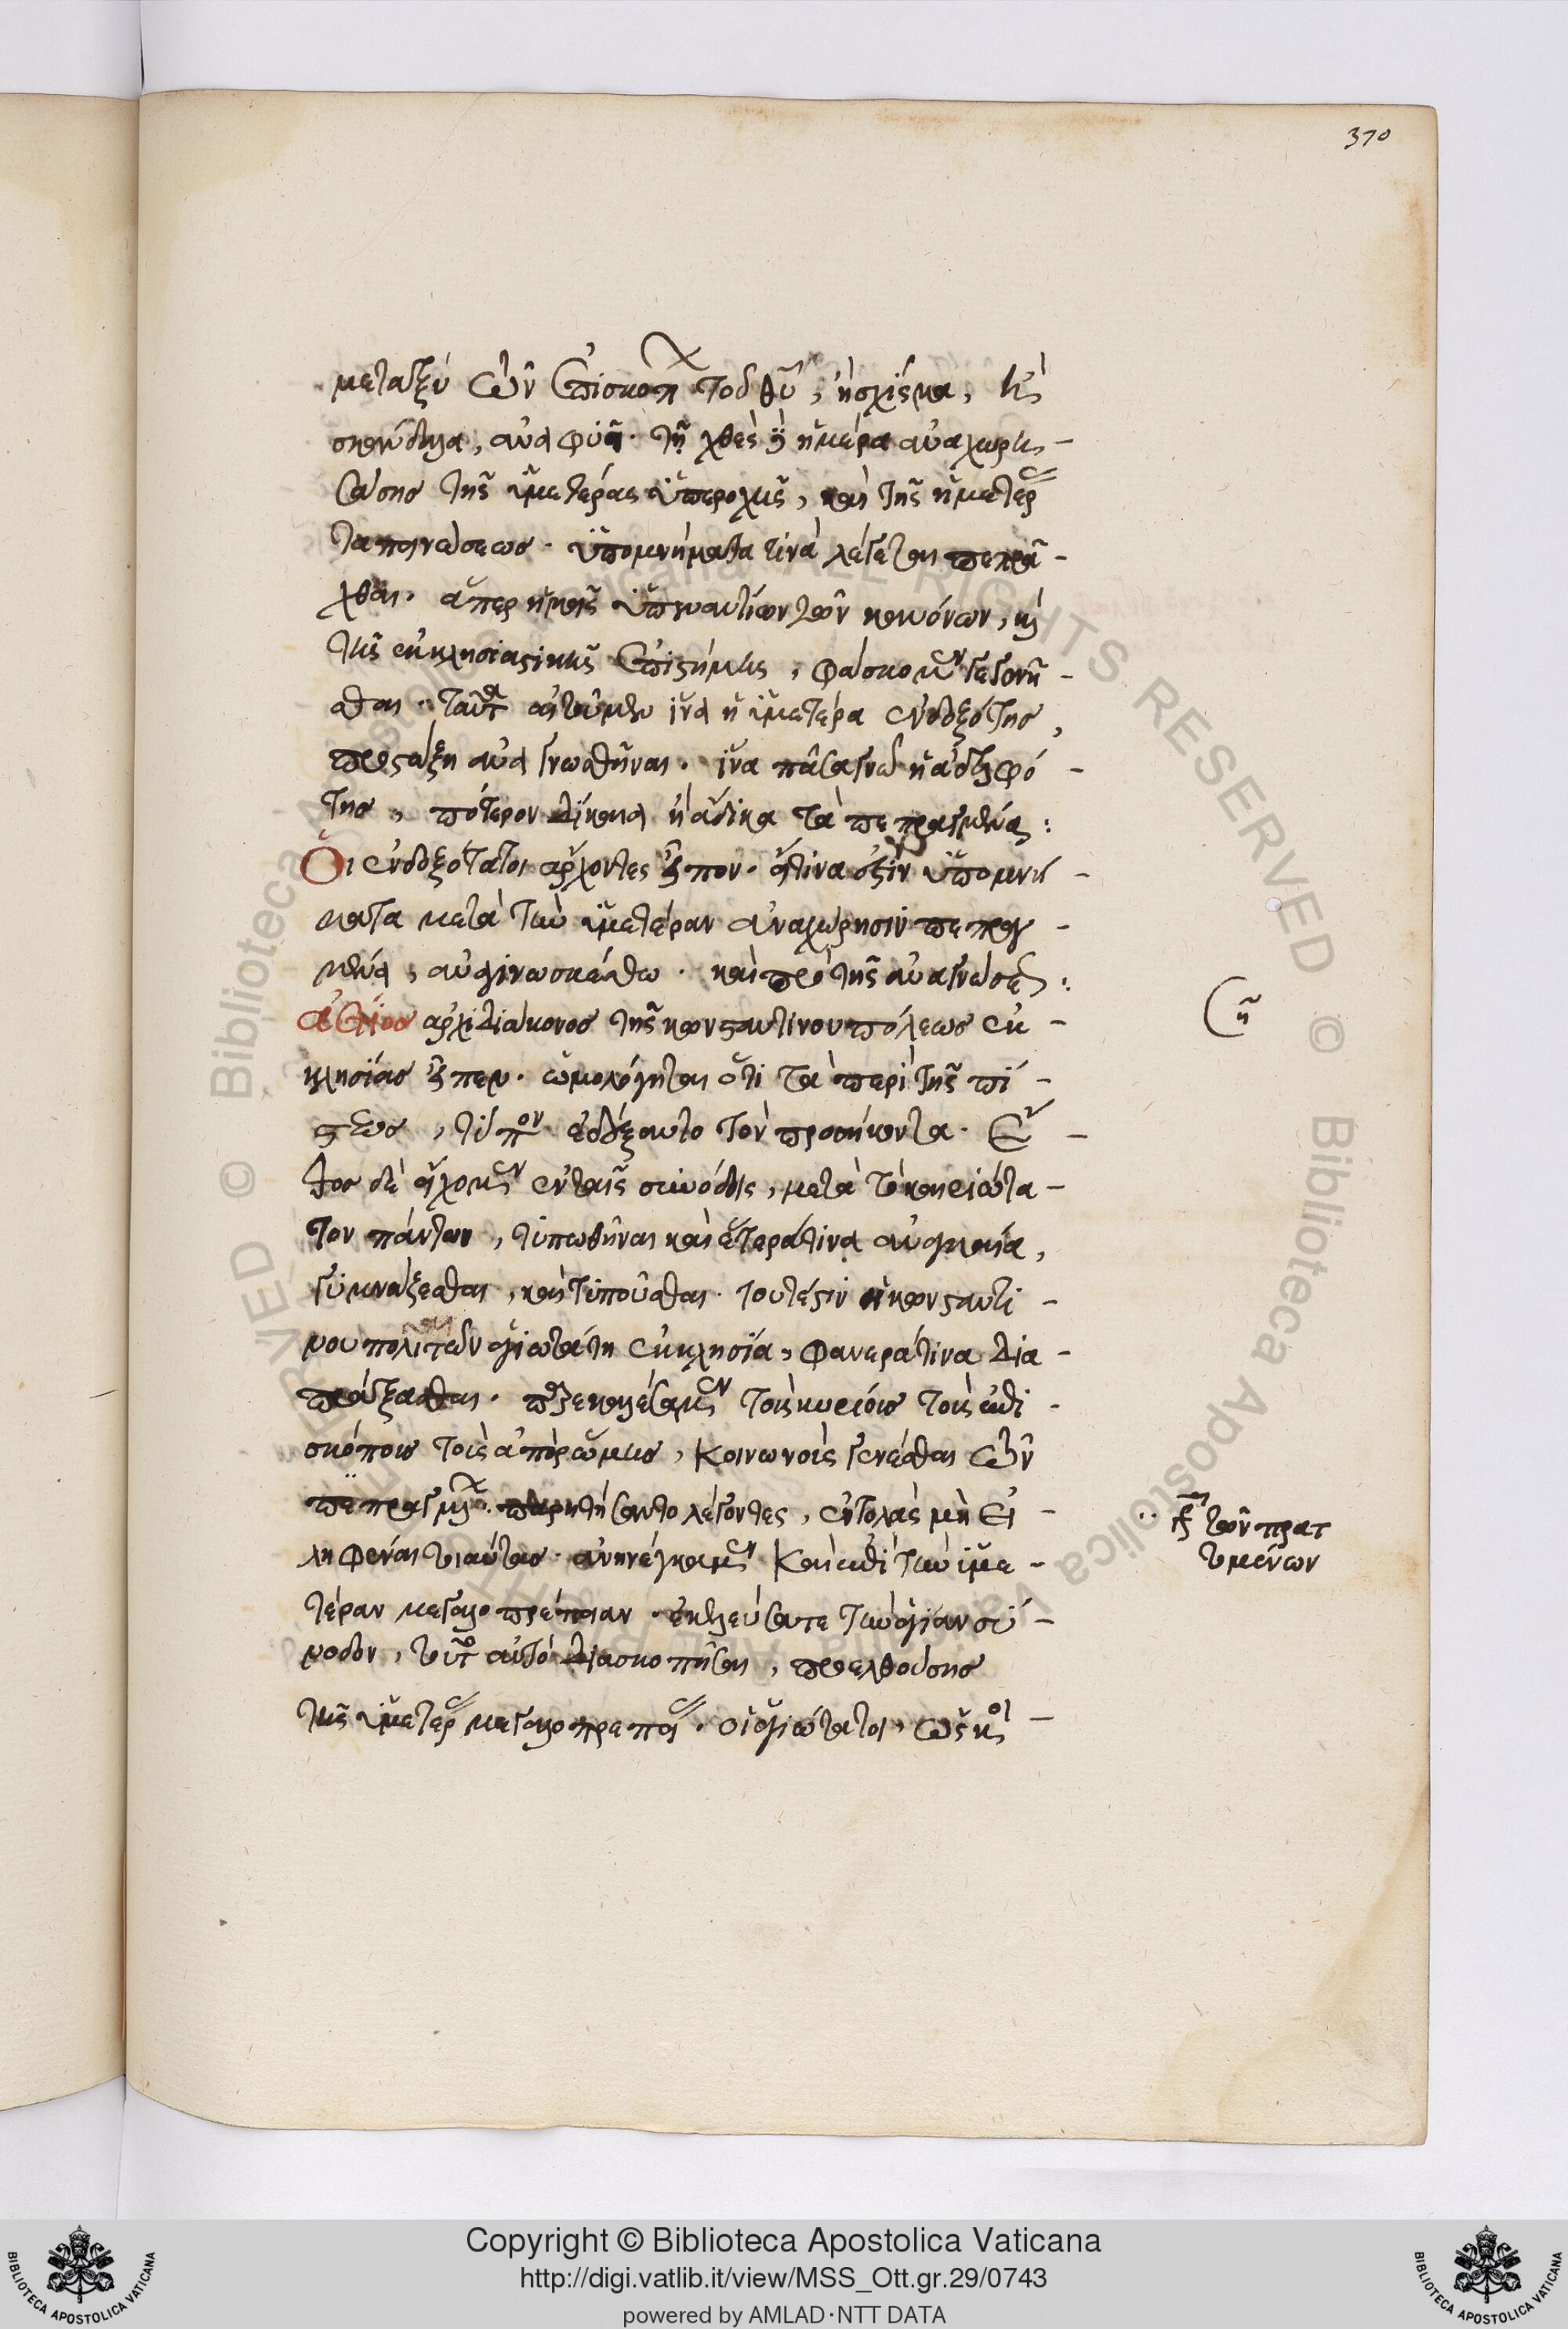 370
μεταξὺ τῶν ἐπισκόπ τοῦ θῦ, ἢ σχίσμα, ἢ
σκάνδαλα, ἀναφυῆ. τῇ χθὲς ἡμέρα ἀναχωρη-
σάσης τῆς ὑμετέρας ὑπεροχῆς, καὶ τῆς ἡμετέρ
ταπεινώσεως. ὑπομνήματα τινὰ λέγεται πεπρᾶ-
χθαι. ἅπερ ἡμεῖς ὑπεναντίον τῶν κανόνων, κ
τῆς ἐκκλησιαστικῆς ἐπιστήμης, φάσκομεν γεγενῆ-
σθαι. ταῦτα αἰτοῦμεν ἵνα ἡ ὑμετέρα ἐνδοξότης,
προστάξη ἀναγνωσθῆναι. ἵνα πᾶσα γνῶ ἡ ἀδελφό-
της, πότερον δίκαια ἢ ἄδικα τὰ πεπραγμένα:
Οἱ ἐνδοξότατοι ἄρχοντες εἶπον. ἅτινα ἐστὶν ὑπομνή-
ματα μετὰ τὴν ἡμετέραν ἀναχώρησιν πεπραγ-
μένα, ἀναγινωσκέσθω. καὶ πρὸ τῆς ἀναγνώσε:
ἀέτιος ἀρχιδιάκονος τῆς κωνσταντινουπόλεως ἐκ-
κλησίας εἶπεν. ὡμολόγηται ὅτι τὰ περὶ τῆς πί-
στεως, τύπον ἐδέξαντο τὸν προσήκοντα. ἔ-
θος δὲ ἔχομεν ἐν ταῖς συνόδοις, μετὰ τὸ καιριώτα-
τον πάντων, τυπωθῆναι καὶ ἕτερά τινα ἀναγκαῖα,
γυμνάζεσθαι, καὶ τυποῦσθαι. τουτέστιν ἡ κωνσταντι-
νουπολιτῶν ἁγιωτάτη ἐκκλησία, φανερά τινα δια-
πράξασθαι. παρεκαλέσαμεν τοῖς κυρίοις τοῖς ἐπι-
σκόποις τοῖς ἀπὸ ῥώμης, κοινωνοῖς γενέσθαι τῶν
πεπραγμ. παρητήσαντο λέγοντες, ἐντολὰς μὴ εἰ-
ληφέναι τοιαύτας. ἀνηνέγκαμεν καὶ ἐπὶ τὴν ὑμε-
τέραν μεγαλοπρέπειαν. ἐκελεύσατε τὴν ἁγίαν σύ-
νοδον, τοῦτο αὐτὸ διασκοπῆσαι, προελθούσης
τῆς ὑμετέρ μεγαλοπρεπεί. οἱ ἁγιώτατοι, ὡς κ οι-
ση
τῶν πρατ
τομένων
Copyright © Biblioteca Apostolica Vaticana
http://digi.vatlib.it/view/MSS_Ott.gr.29/0743
powered by AMLAD·NTT DATA